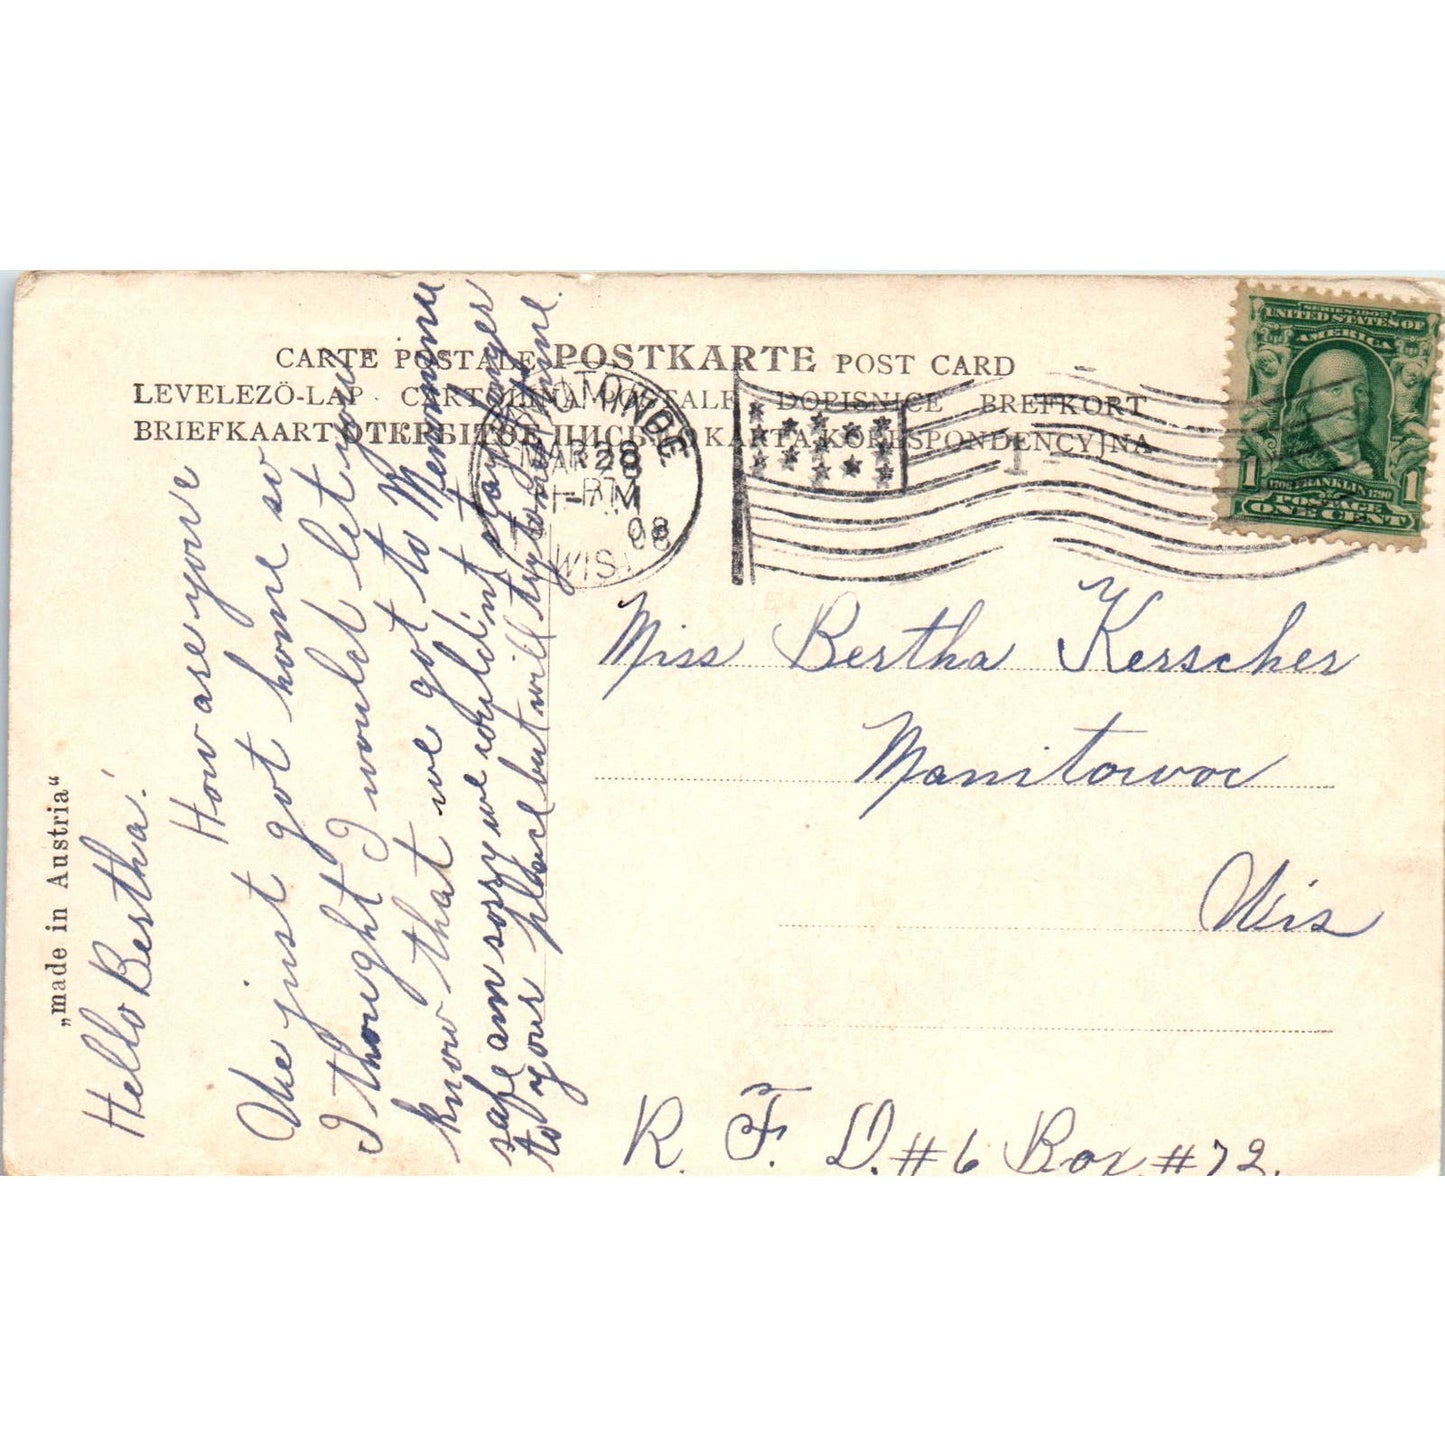 CARTE POSTALE POSTKARTE POST CARD
LEVELEZÖ-LAP CARTOLINA POSTALE DOPISNICE BREFKORT
BRIEFKAART ОТКРЫТОЕ ПИСЬМО KARTA KORESPONDENCYJNA
MAR 28
PM
08
WIS.
1
SERIES 1902
UNITED STATES OF
AMERICA
1 1706 FRANKLIN 1790 1
POSTAGE
ONE CENT
„made in Austria“
Hello Bertha!
How are you
We just got home so
I thought I would let you
know that we got to Menominee
safe am sorry we could'nt stay longer
to your place but will try to next time.
Miss Bertha Kerscher
Manitowoc
Wis
R. F. D. #6 Box #72.